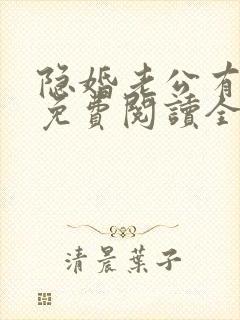 隐婚老公有
免費閱讀全
清晨葉子